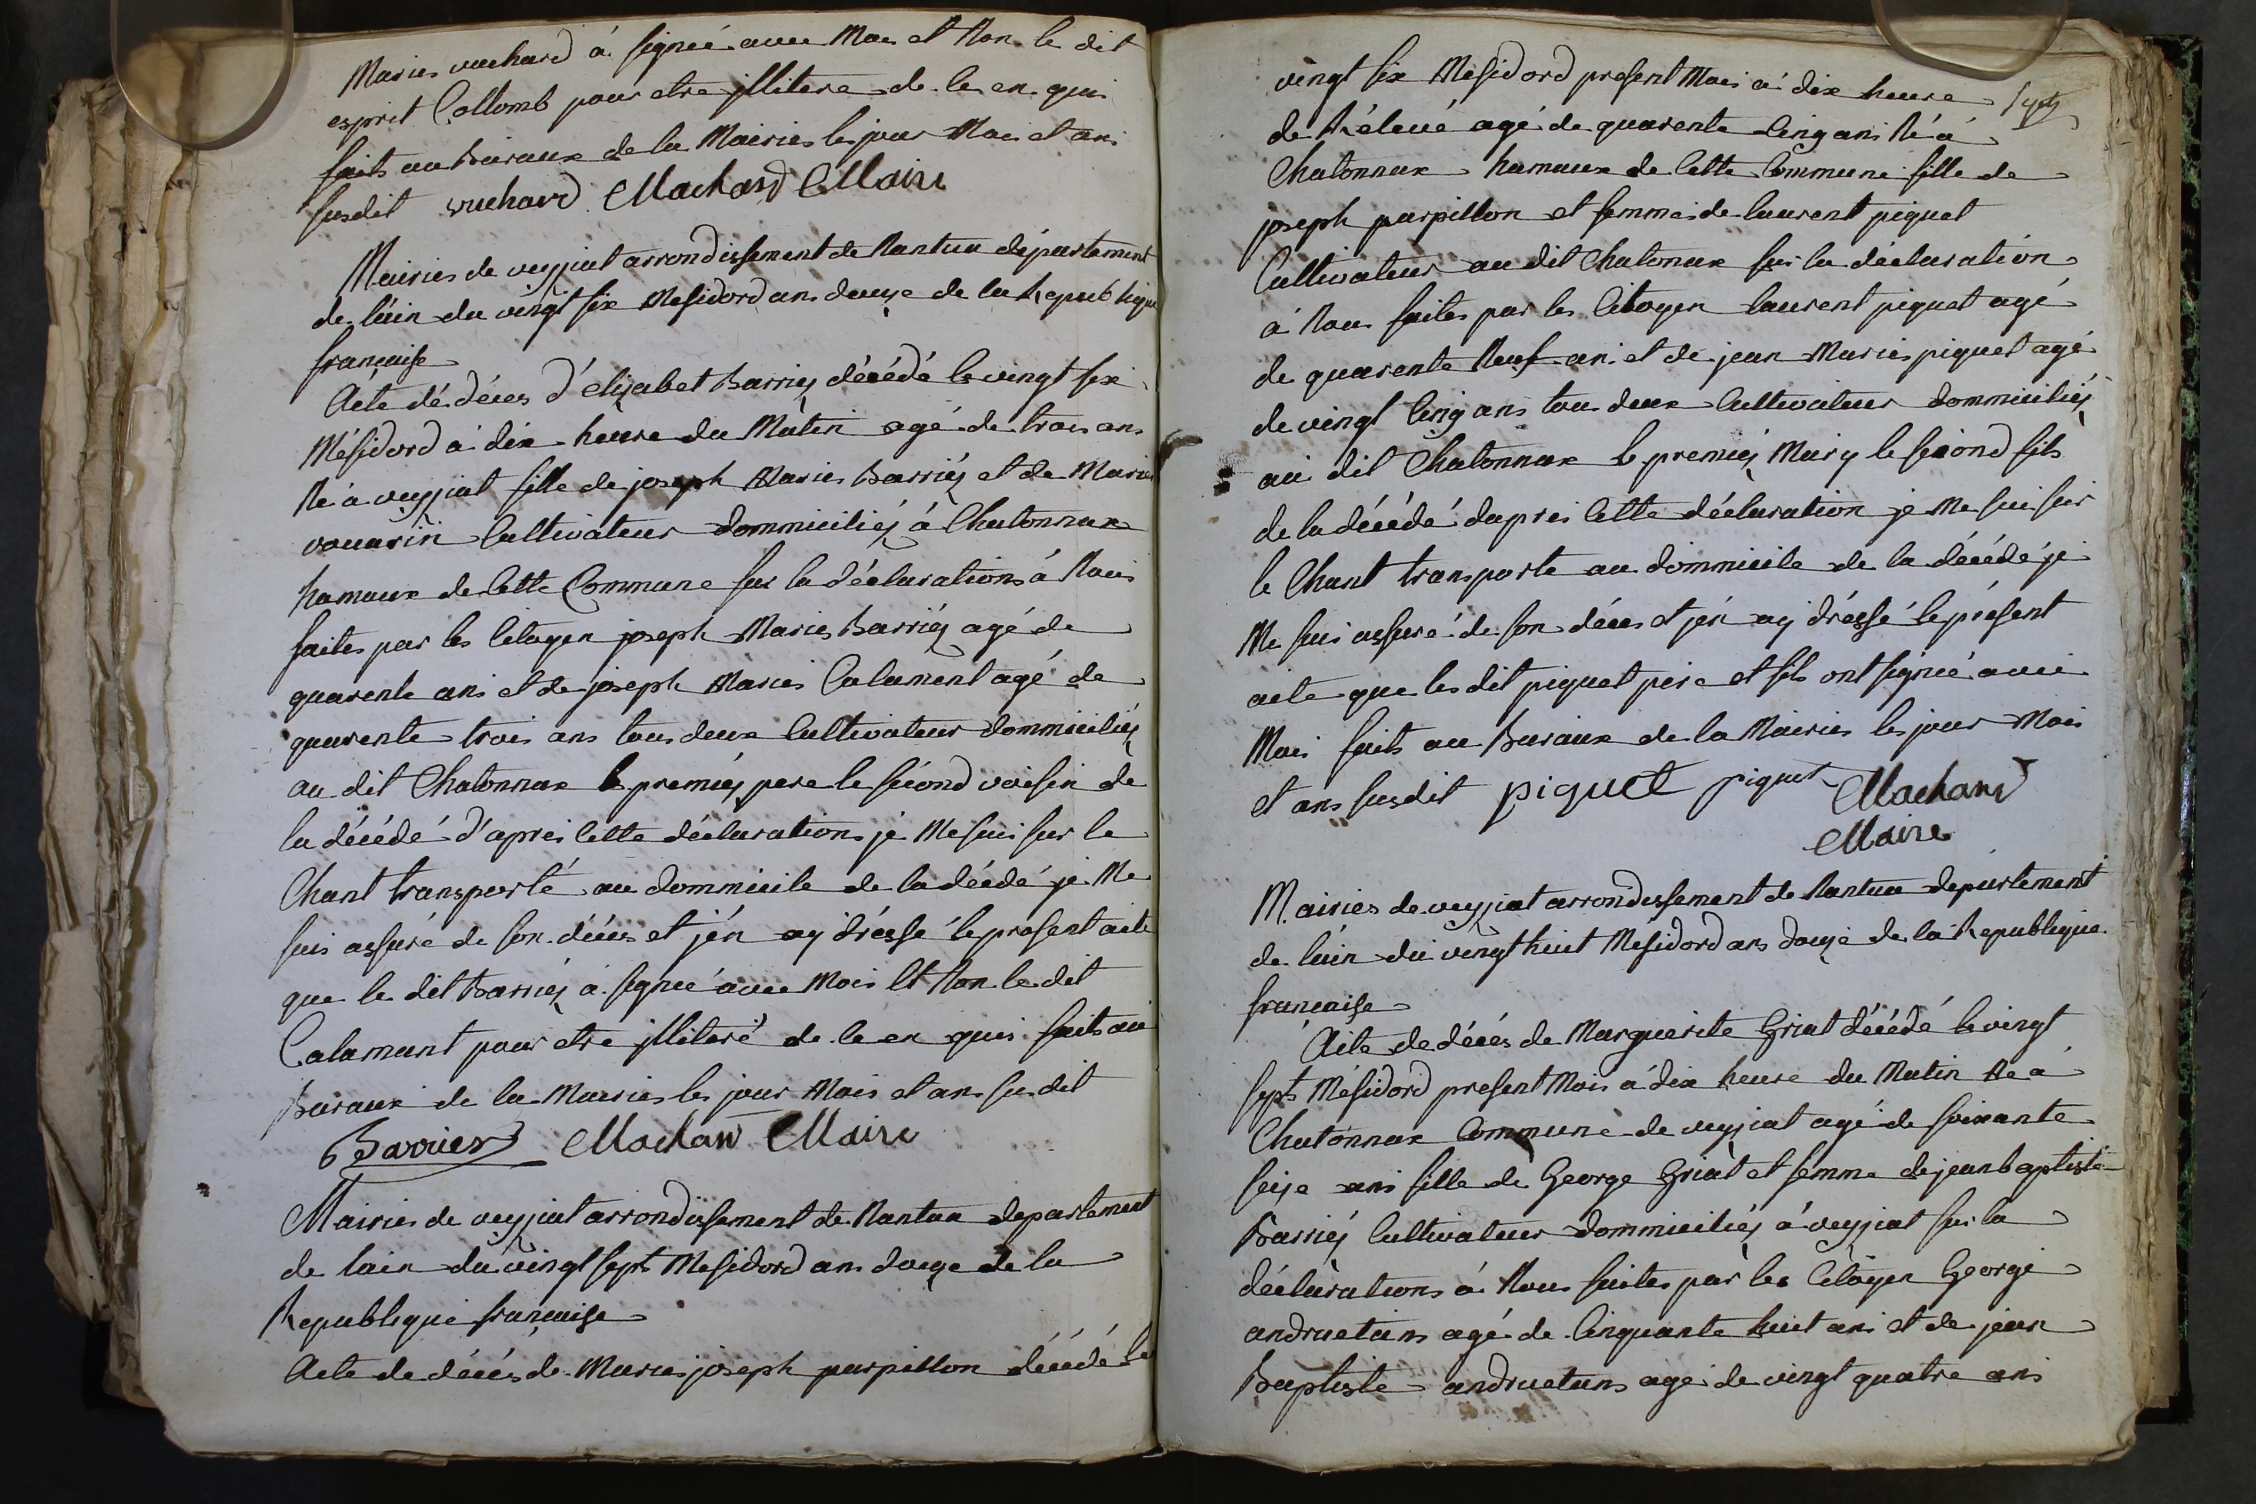 Maries vuchard à signeé avec Moi et Non le dit
esprit Collomb pour etre jlliteré de le en quis
faits au Buraux de la Mairies les jour Moi et ans
susdit vuchard Machard Maire
Mairies de veyziat arrondissement de Nantua département
de l'ain du vingt six Mesidord ans douze de la Republique
francaise
Acte dé déces d'elizabet Barriez décédé le vingt six
Mésidord à dix heure du Matin agé de trois ans
Né à veyziat fille de joseph Maries Barriéz et de Maries
vouarin Cultivateur dommiciliéz à Chatonnax
hamaux de Cette Commune sur la déclarations à Nous
faites par les Citoyen joseph Maries Barriéz agé de
quarente ans et de joseph Maries Calament agé de
quarente trois ans tous deux Cultivateur dommiciliéz
au dit Chatonnax le premiéz pere le sécond voisin de
la décédé d'après Cette déclarations je Me suis sur le
Chant transporté au dommicile de la décédé je Me
suis assuré de son déces et j'én ay dréssé le présent acte
que le dit Barriéz à signeé avec Moi Et Non le dit
Calamant pour etre jlliteré de le en quis faits au
Buraux de la Mairies les jour Mois et ans susdit
Barrier Machard Maire
Mairies de veyziat arrondissement de Nantua departement
de l'ain du vingt sept Mesidord ans douze de la
Republique francaise
Acte de décés de Maries joseph purpillon décédé le
vingt six Mésidord présent Mois à dix heure
de Rélevé agé de quarente Cinq ans Né à
Chatonnax hamaux de Cette Commune fille de
joseph purpillon et femme de laurent piquet
Cultivateur au dit Chatonax sur la déclaration
à Nous faites par les Citoyen laurent piquet agé
de quarente Neuf ans et de jean Maries piquet agé
de vingt Cinq ans tous deux Cultivateur dommiciliéz
au dit Chatonnax le premiéz Mary le sécond fils
de la décédé dapres Cette déclaration je Me suis sur
le Chant transporté au dommicile de la décédé je
Me suis assuré de son déces et j'én ay dréssé le présent
acte que les dit piquet pere et fils ont signeé avec
Moi faits au Buraux de la Mairies les jour Mois
et ans susdit piquet piquet Machard
Maire
Mairies de veyziat arrondissement de Nantua departement
de l'ain du vingt huit Mésidord ans douze de la Republique
francaise
Acte de décés de Marguerite Griat décédé le vingt
sept Mésidord présent Mois à dix heure du Matin Né à
Chatonnax Commune de veyziat agé de soixante
seize ans fille de George Griat et femme de jean baptiste
Barriéz Cultivateur dommiciliéz à veyziat sur la
déclarations à Nous faites par les Citoyen George
andruetans agé de Cinquante huit ans et de jean
Baptiste andruetans agé de vingt quatre ans